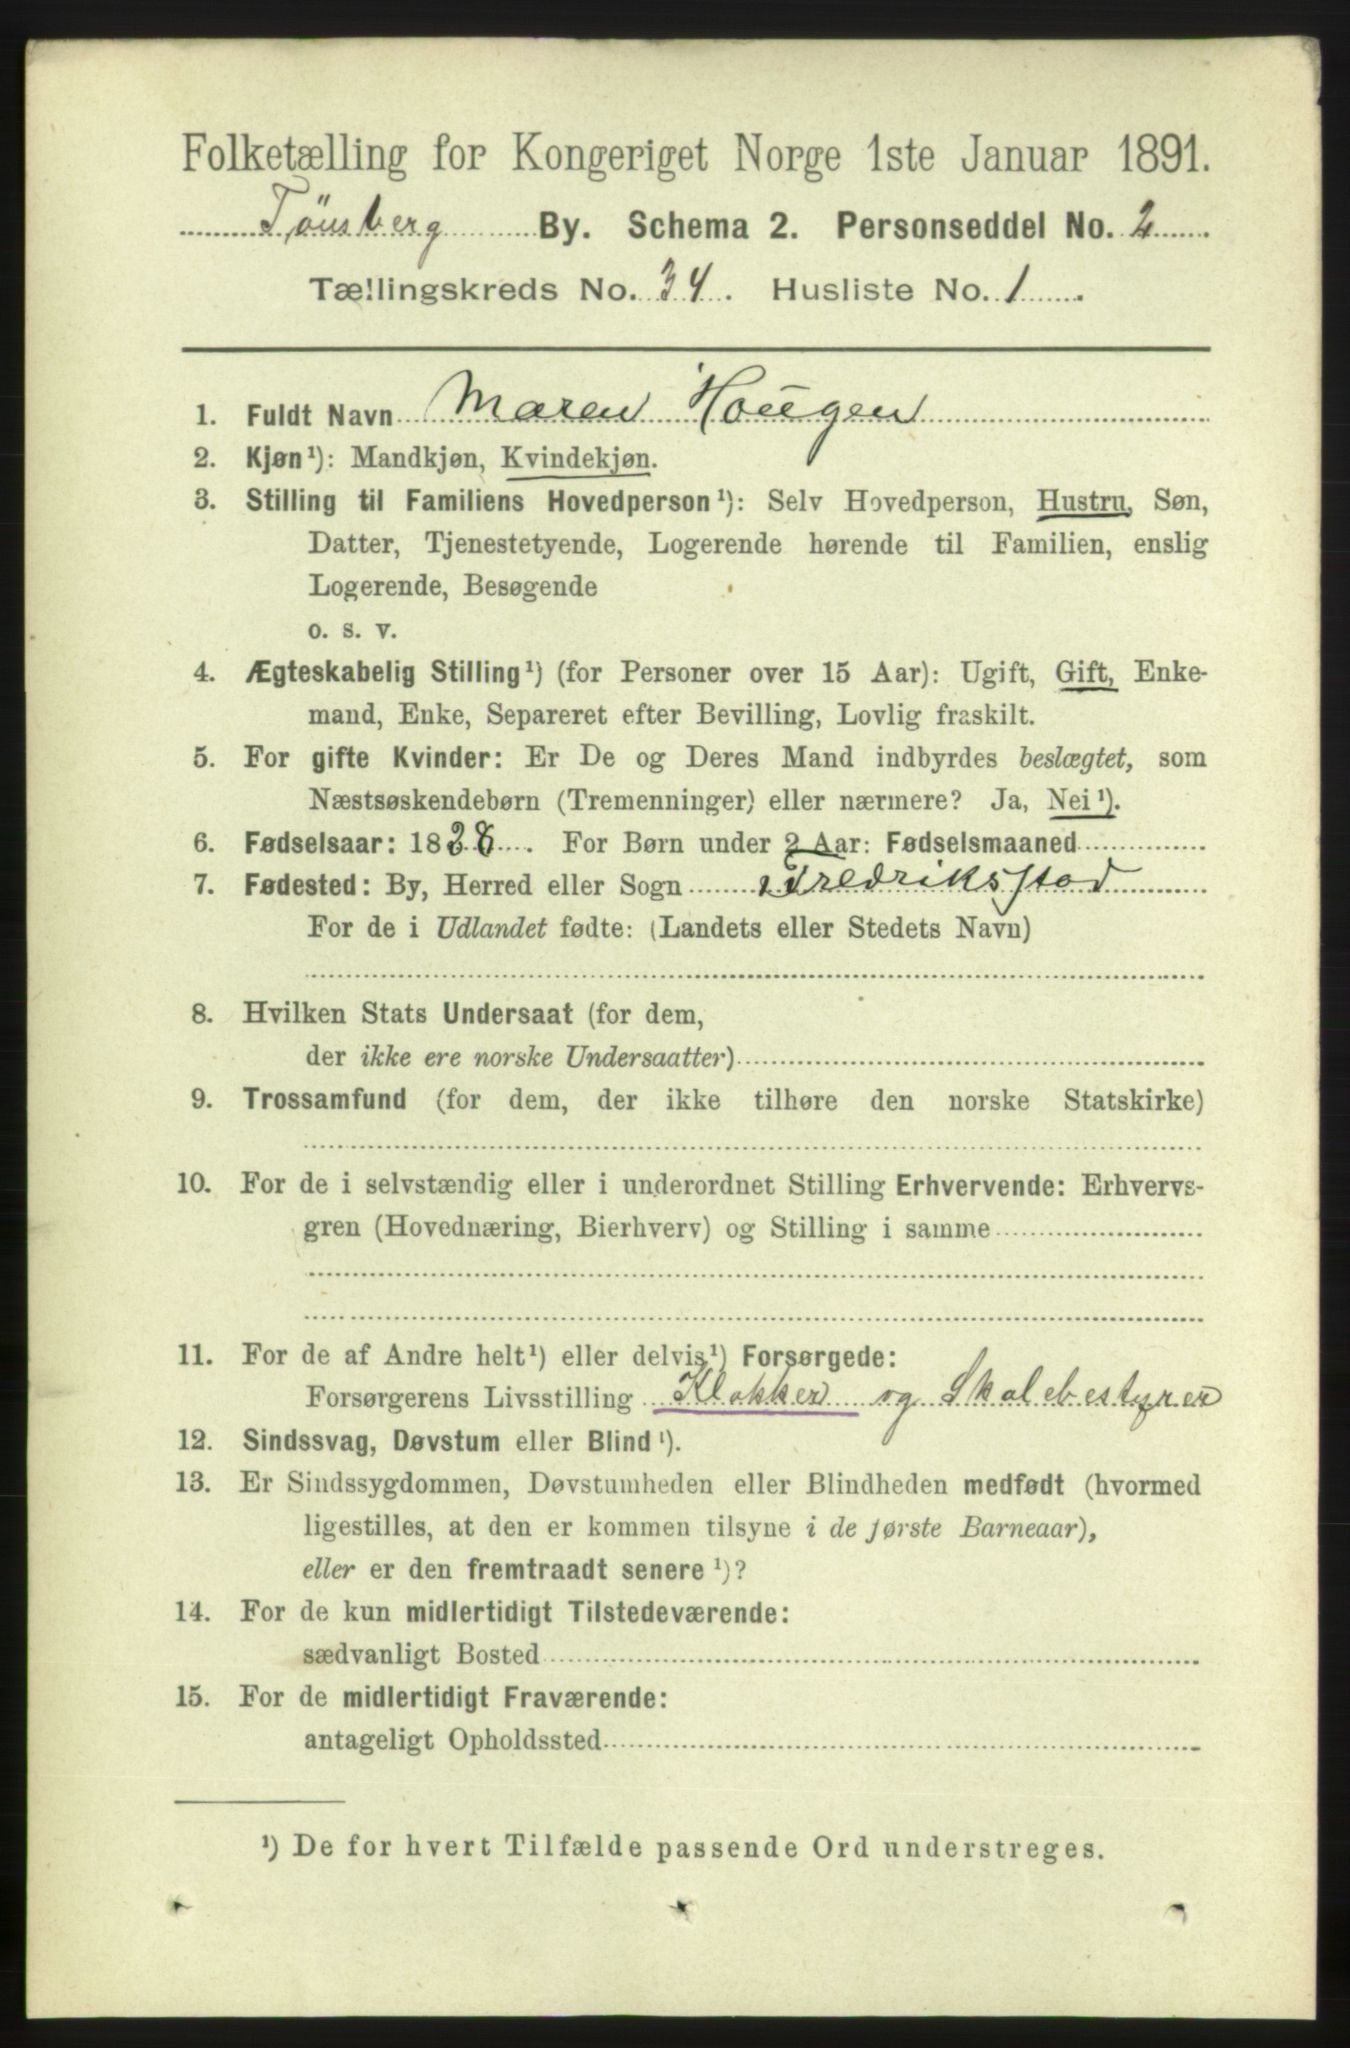 Folketælling for Kongeriget Norge 1ste Januar 1891.
Tönsberg By. Schema 2. Personseddel No. 2
Tællingskreds No. 34. Husliste No. 1
1. Fuldt Navn Maren Hougen
2. Kjøn¹): Mandkjøn, Kvindekjøn.
3. Stilling til Familiens Hovedperson¹): Selv Hovedperson, Hustru, Søn,
Datter, Tjenestetyende, Logerende hørende til Familien, enslig
Logerende, Besøgende
o. s. v.
4. Ægteskabelig Stilling¹) (for Personer over 15 Aar): Ugift, Gift, Enke-
mand, Enke, Separeret efter Bevilling, Lovlig fraskilt.
5. For gifte Kvinder: Er De og Deres Mand indbyrdes beslægtet, som
Næstsøskendebørn (Tremenninger) eller nærmere? Ja, Nei¹).
6. Fødselsaar: 1828. For Børn under 2 Aar: Fødselsmaaned
7. Fødested: By, Herred eller Sogn Fredriksstad
For de i Udlandet fødte: (Landets eller Stedets Navn)
8. Hvilken Stats Undersaat (for dem,
der ikke ere norske Undersaatter)
9. Trossamfund (for dem, der ikke tilhøre den norske Statskirke)
10. For de i selvstændig eller i underordnet Stilling Erhvervende: Erhvervs-
gren (Hovednæring, Bierhverv) og Stilling i samme
11. For de af Andre helt¹) eller delvis¹) Forsørgede:
Forsørgerens Livsstilling Klokker og Skolebestyrer
12. Sindssvag, Døvstum eller Blind¹).
13. Er Sindssygdommen, Døvstumheden eller Blindheden medfødt (hvormed
ligestilles, at den er kommen tilsyne i de første Barneaar),
eller er den fremtraadt senere¹)?
14. For de kun midlertidigt Tilstedeværende:
sædvanligt Bosted
15. For de midlertidigt Fraværende:
antageligt Opholdssted
¹) De for hvert Tilfælde passende Ord understreges.